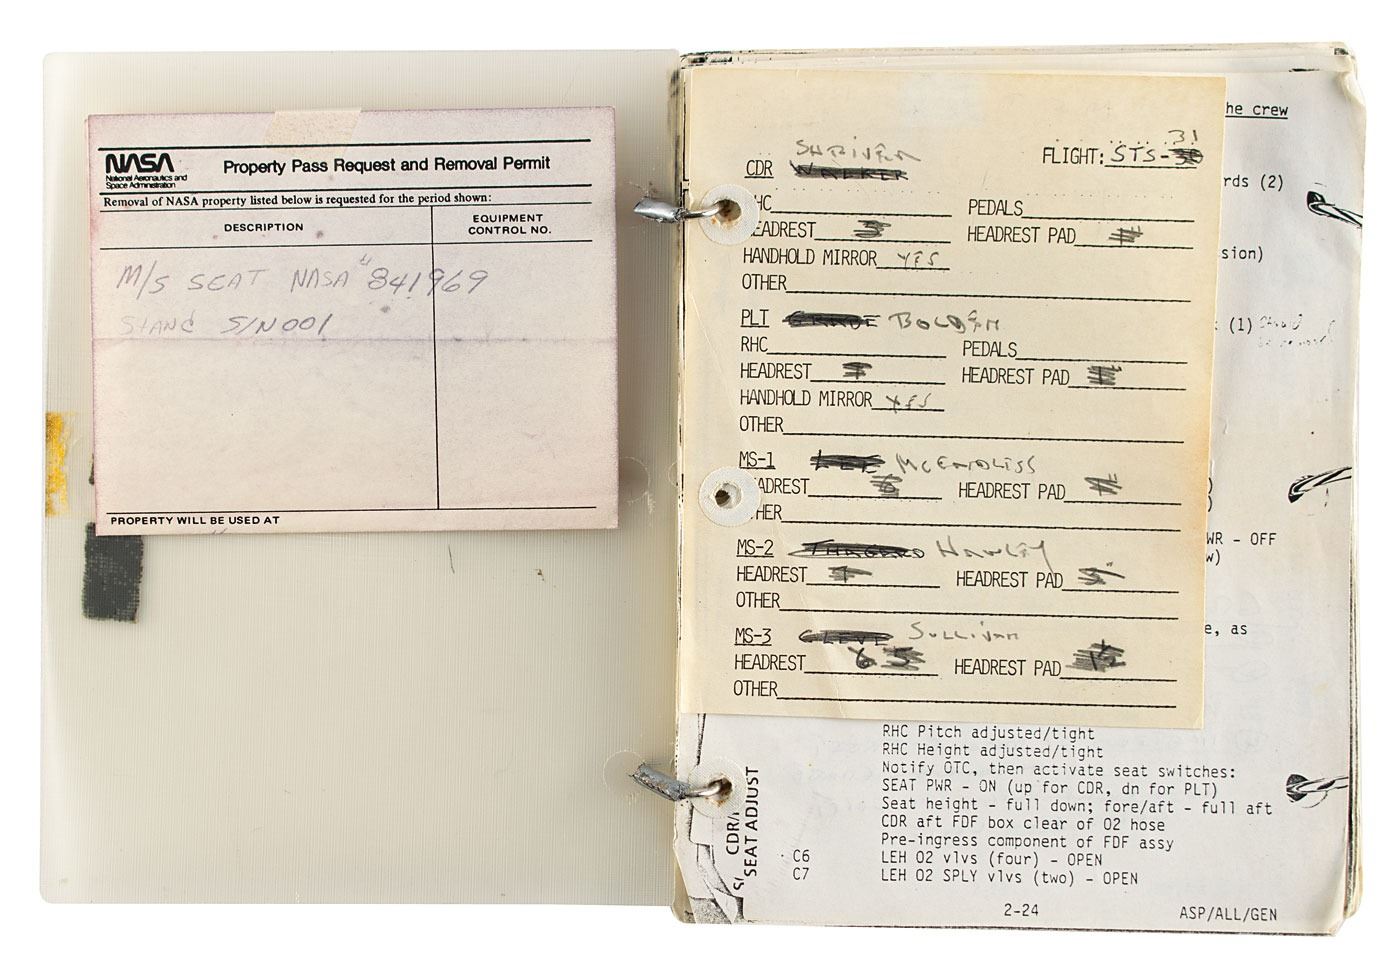 NASA
National Aeronautics and
Space Administration
Property Pass Request and Removal Permit
Removal of NASA property listed below is requested for the period shown:
DESCRIPTION
EQUIPMENT
CONTROL NO.
M/S SEAT NASA #841969
STAND S/N 001
PROPERTY WILL BE USED AT
he crew
31
FLIGHT: STS-
SHRIVER
CDR WALKER
rds (2)
HC PEDALS
EADREST HEADREST PAD
HANDHOLD MIRROR YES
sion)
OTHER
PLT GRABE BOLDEN
(1)
RHC PEDALS
HEADREST HEADREST PAD
HANDHOLD MIRROR YES
OTHER
MS-1 LEE MCCANDLESS
ADREST HEADREST PAD
HER
WR - OFF
MS-2 THAGARD HAWLEY
w)
HEADREST HEADREST PAD
OTHER
e, as
MS-3 CLEAVE SULLIVAN
HEADREST 6 HEADREST PAD
OTHER
RHC Pitch adjusted/tight
RHC Height adjusted/tight
Notify OTC, then activate seat switches:
SEAT PWR - ON (up for CDR, dn for PLT)
Seat height - full down; fore/aft - full aft
CDR aft FDF box clear of O2 hose
Pre-ingress component of FDF assy
C6 LEH O2 vlvs (four) - OPEN
C7 LEH O2 SPLY vlvs (two) - OPEN
SEAT ADJUST
2-24
ASP/ALL/GEN